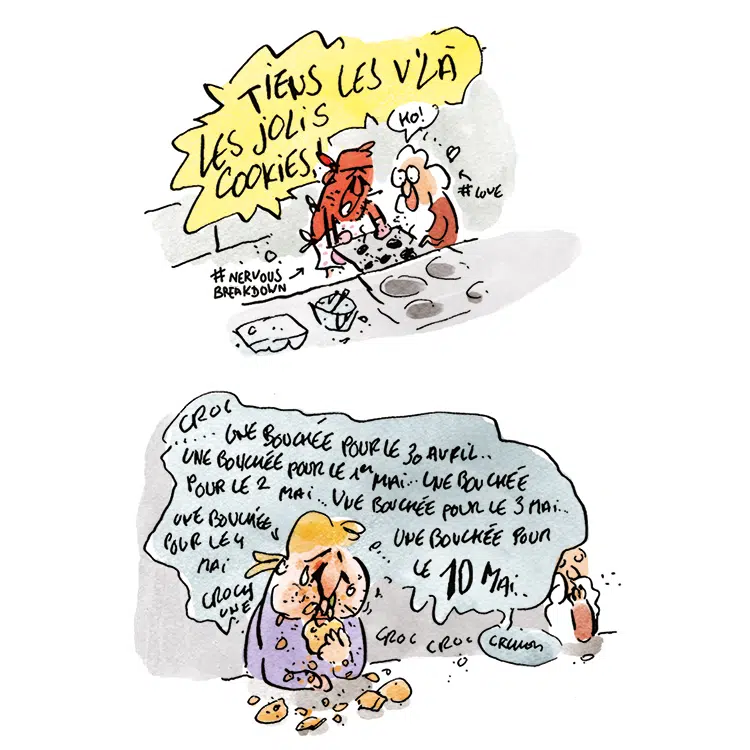 TIENS LES V'LÀ
LES JOLIS
COOKIES!
HO!
#LOVE
#NERVOUS
BREAKDOWN
CROC
..... UNE BOUCHÉE POUR LE 30 AVRIL..
UNE BOUCHÉE POUR LE 1ER MAI.. UNE BOUCHÉE
POUR LE 2 MAI... UNE BOUCHÉE POUR LE 3 MAI..
UNE BOUCHÉE
POUR LE 4
MAI
CROCH
UNE
UNE BOUCHÉE POUR
LE 10 MAI..
CROC CROC